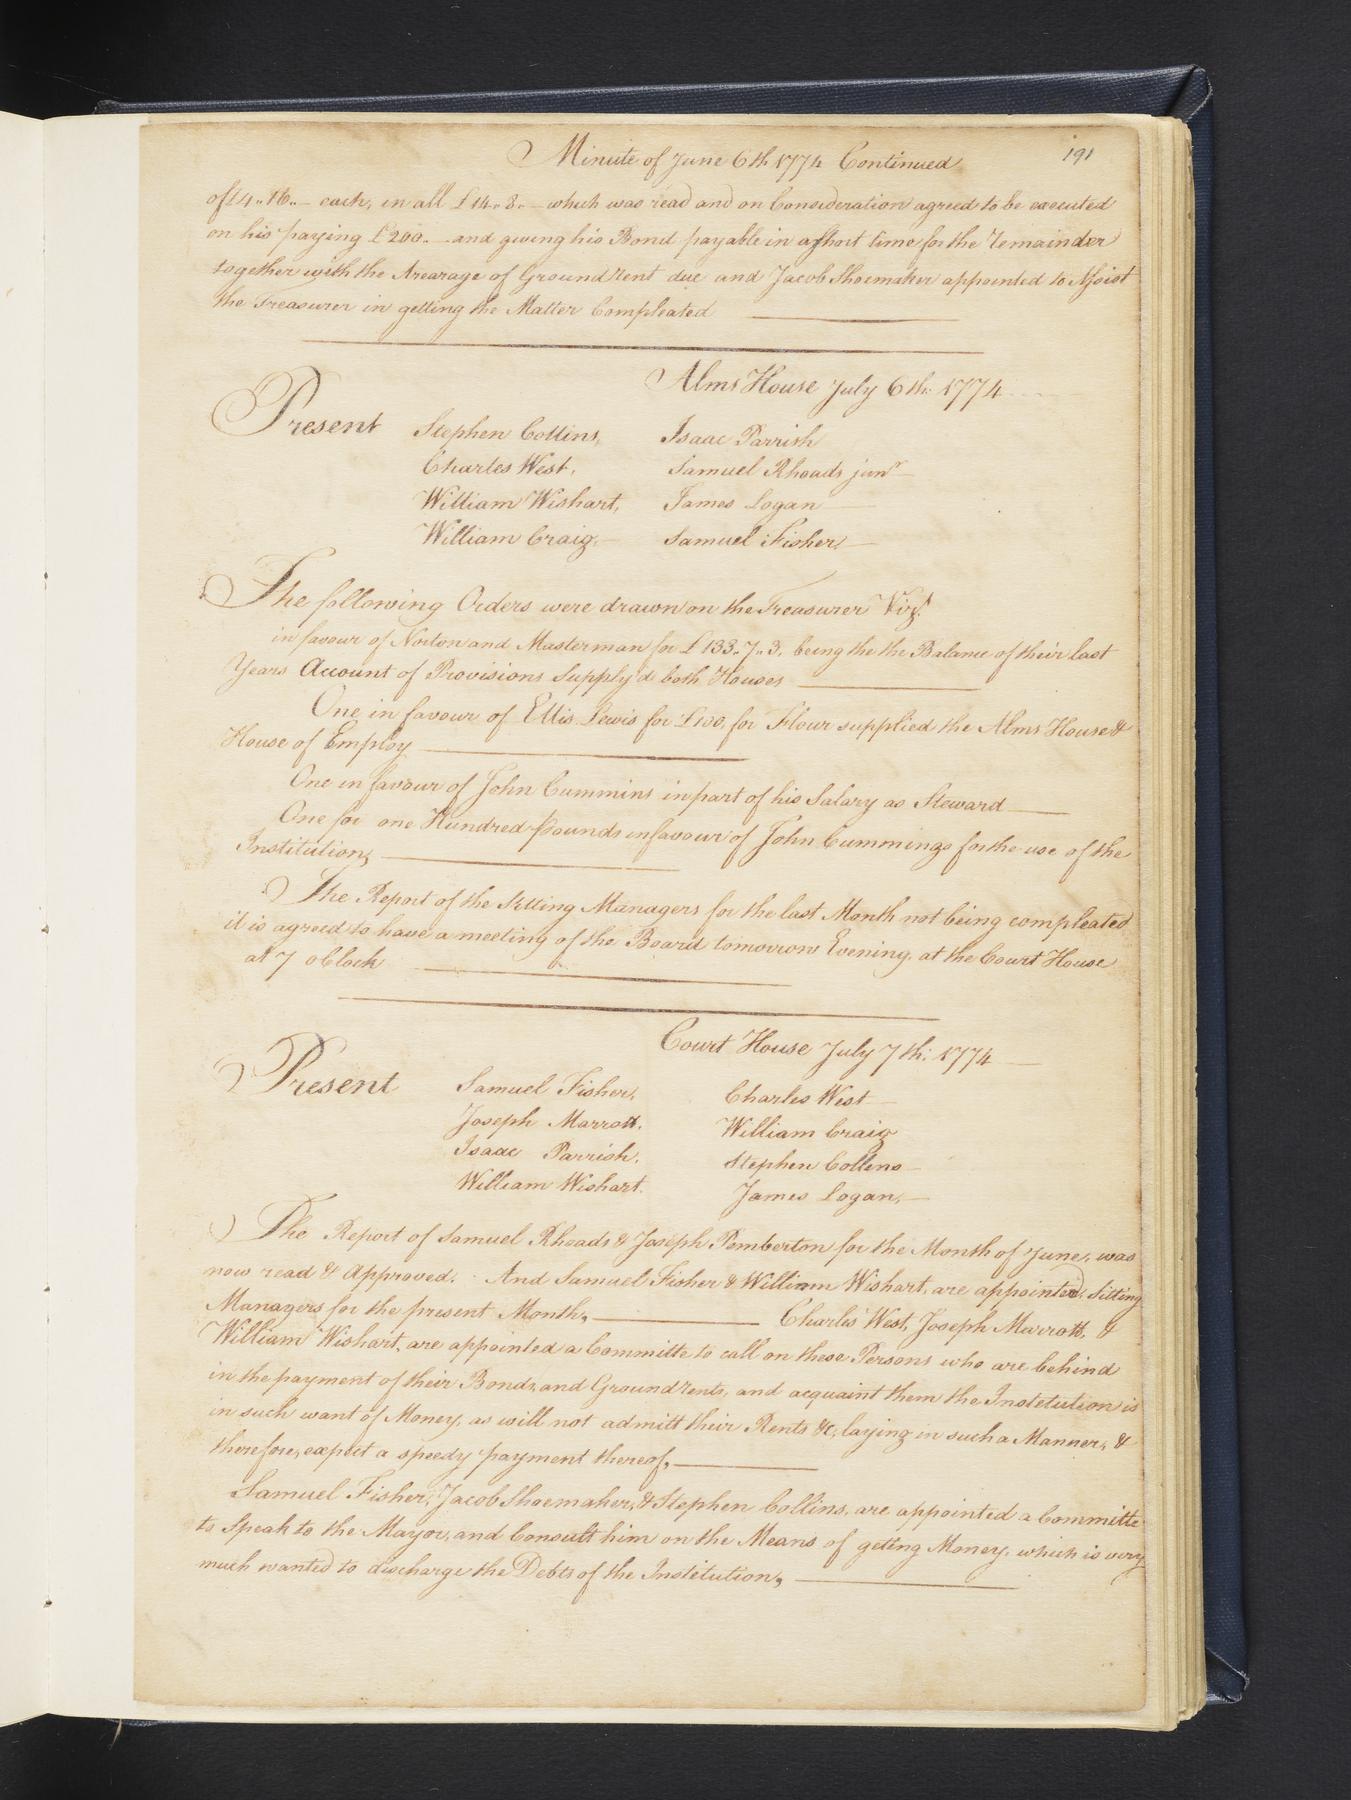 Minute of June 6th 1774 Continued
191
of £4..16..— each, in all £14..8..— which was read and on Consideration agreed to be executed
on his paying £200..— and giving his Bond payable in a short time for the Remainder
together with the Arearage of Ground Rent due and Jacob Shoemaker appointed to Assist
the Treasurer in getting the Matter Compleated
Alms House July 6th: 1774
Present Stephen Collins, Isaac Parrish
Charles West, Samuel Rhoads junr
William Wishart, James Logan
William Craig, Samuel Fisher
The following Orders were drawn on the Treasurer Vizt.
in favour of Norton and Masterman for £133..7..3, being the the Balance of their last
Years Account of Provisions Supply'd both Houses
One in favour of Ellis Lewis for £100, for Flour supplied the Alms House &
House of Employ
One in favour of John Cummins in part of his Salary as Steward
One for one Hundred Pounds in favour of John Cummings for the use of the
Institution,
The Report of the Sitting Managers for the last Month not being compleated
it is agreed to have a meeting of the Board tomorrow Evening, at the Court House
at 7 oClock
Court House July 7th: 1774
Present Samuel Fisher, Charles West
Joseph Marrott, William Craig
Isaac Parrish, Stephen Collins
William Wishart. James Logan,
The Report of Samuel Rhoads & Joseph Pemberton for the Month of June, was
now read & Approved. And Samuel Fisher & William Wishart, are appointed, Sitting
Managers for the present Month, Charles West, Joseph Marrott, &
William Wishart, are appointed a Committe to call on these Persons who are behind
in the payment of their Bonds, and Ground Rents, and acquaint them the Institution is
in such want of Money, as will not admitt their Rents &c, laying in such a Manner, &
therefore, expect a speedy payment thereof,
Samuel Fisher, Jacob Shoemaker, & Stephen Collins, are appointed a Committe
to Speak to the Mayor, and Consult him on the Means of geting Money, which is very
much wanted to discharge the Debts of the Institution,